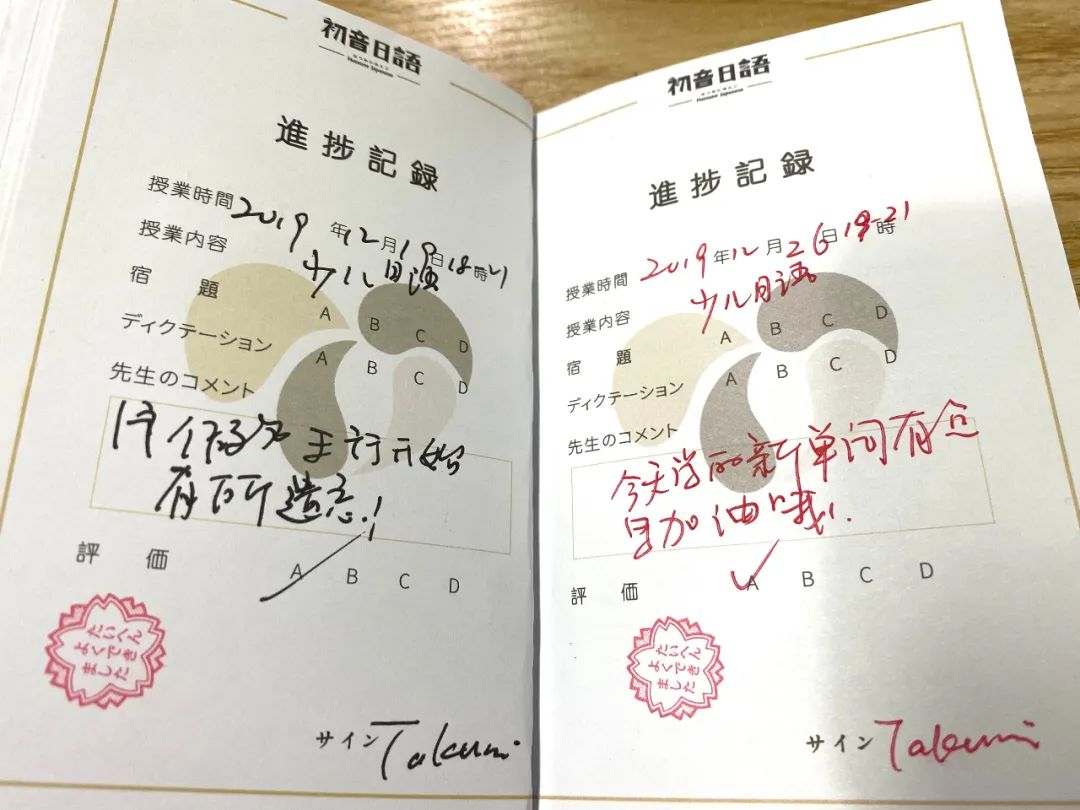 初音日語
はつねにほんご
Hatsune Japanese
進捗記録
授業時間 2019年12月19日18時21
授業内容 少儿日语
宿題 A B C D
ディクテーション A B C D
先生のコメント
有所遗忘!
評価 A B C D
たいへん
よくでき
ました
サイン Takumi
初音日語
はつねにほんご
Hatsune Japanese
進捗記録
授業時間 2019年12月26日18-21時
授業内容 少儿日语
宿題 A B C D
ディクテーション A B C D
先生のコメント
今天学的新单词有点
加油哦!
評価 A B C D
たいへん
よくでき
ました
サイン Takumi